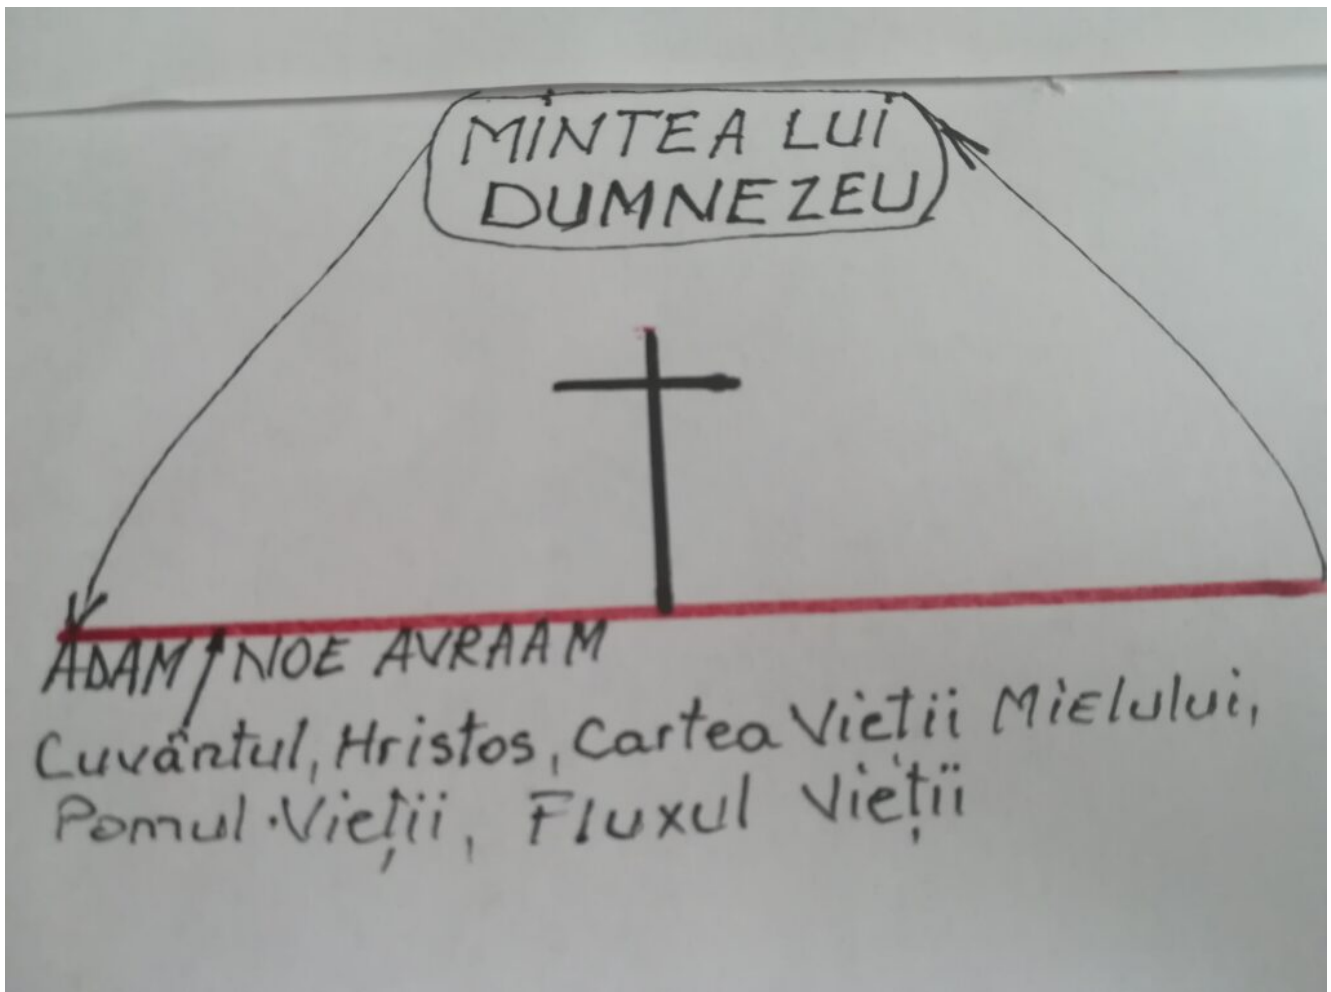 MINTEA LUI
DUMNEZEU
ADAM NOE AVRAAM
Cuvântul, Hristos, Cartea Vieții Mielului,
Pomul Vieții, Fluxul Vieții